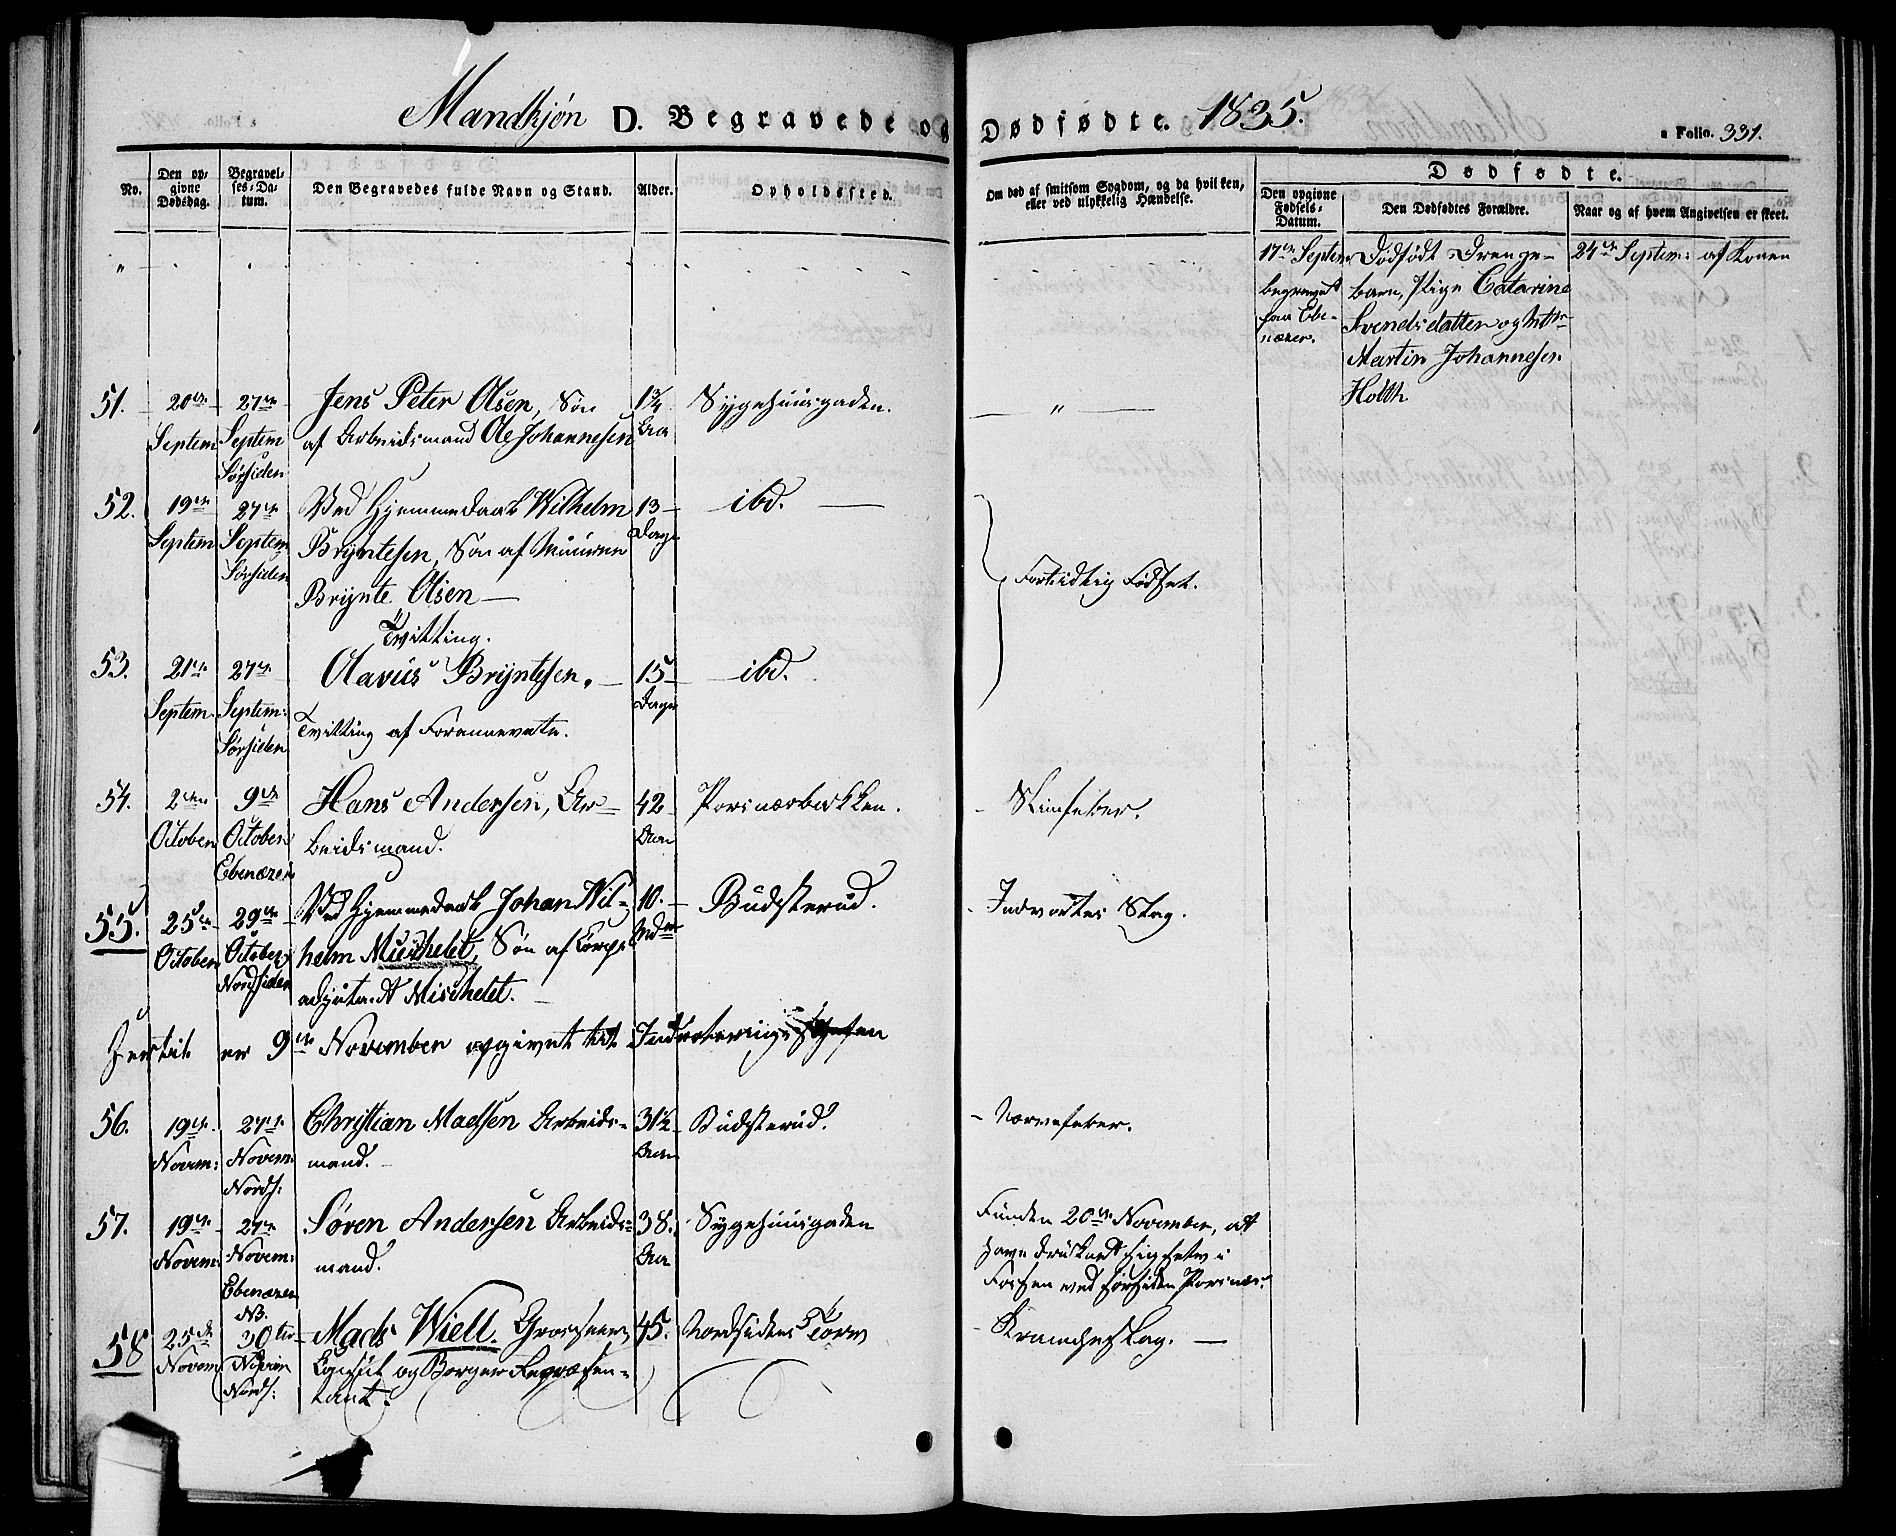 Mandkjøn D. Begravede og Dødfødte. 1835.
a Folio. 331.
No.
Den opgivne Dødsdag.
Begravelses-Datum.
Den Begravedes fulde Navn og Stand.
Alder.
Opholdssted.
Om død af smitsom Sygdom, og da hvilken,
eller ved ulykkelig Hændelse.
Dødfødte.
Den opgivne Fødsels-Datum.
Den Dødfødtes Forældre.
Naar og af hvem Angivelsen er skeet.
17de Septem
begravet
paa Ebe-
næzer.
Dødfødt Drenge-
barn, Pige Catarine
Svendsdatter og
Martin Johannesen
Holth
24de Septem: af Konen
51.
20de
Septem
27de
Septem
Sørsiden
Jens Peter Olsen, Søn
af Arbeidsmand Ole Johannesen
1 3/4
Aar
Sygehuusgaden.
"
52.
19de
Septem
27de
Septem
Sørsiden
Ved Hjemmedaab Wilhelm
Bryntesen, Søn af Muurer
Brynte Olsen
Tvilling.
13
Dage
ibd.
Fortidlig Fødsel.
53.
21de
Septem.
27de
Septem:
Sørsiden
Olavus Bryntesen.
Tvilling af Forannevnte.
15
Dage
ibd.
54.
2den
October
9de
October
Ebenæzer
Hans Andersen, Ar-
beidsmand.
42
Aar
Porsnærbakken.
Sliimfeber.
55.
25de
October
29de
October
Nordsiden
Ved Hjemmedaab Johan Wil-
helm Mischelet, Søn af Corps
adjutant Mischelet.
10.
Mdr
Budsterud.
Indvortes Slag.
Hertil er 9de November opgivet til
56.
19de
Novem:
27de
Novem:
Nords:
Christian Madsen Arbeids-
mand.
31 1/2
Aar
Budsterud.
Nervefeber.
57.
19de
Novem:
27de
Novem:
Ebenæzer
Søren Andersen Arbeids-
mand.
38.
Aar
Sygehuusgaden
Funden 20de November, at
have druknet sig selv i
Fossen ved Sørsiden Porsnæs.
58
25de
Novem
NB.
30te
Novem
Nords:
Mads Wiell. Grosserer,
Consul og Borger Repræsen-
tant.
45.
Nordsidens Torv
Krampeslag.